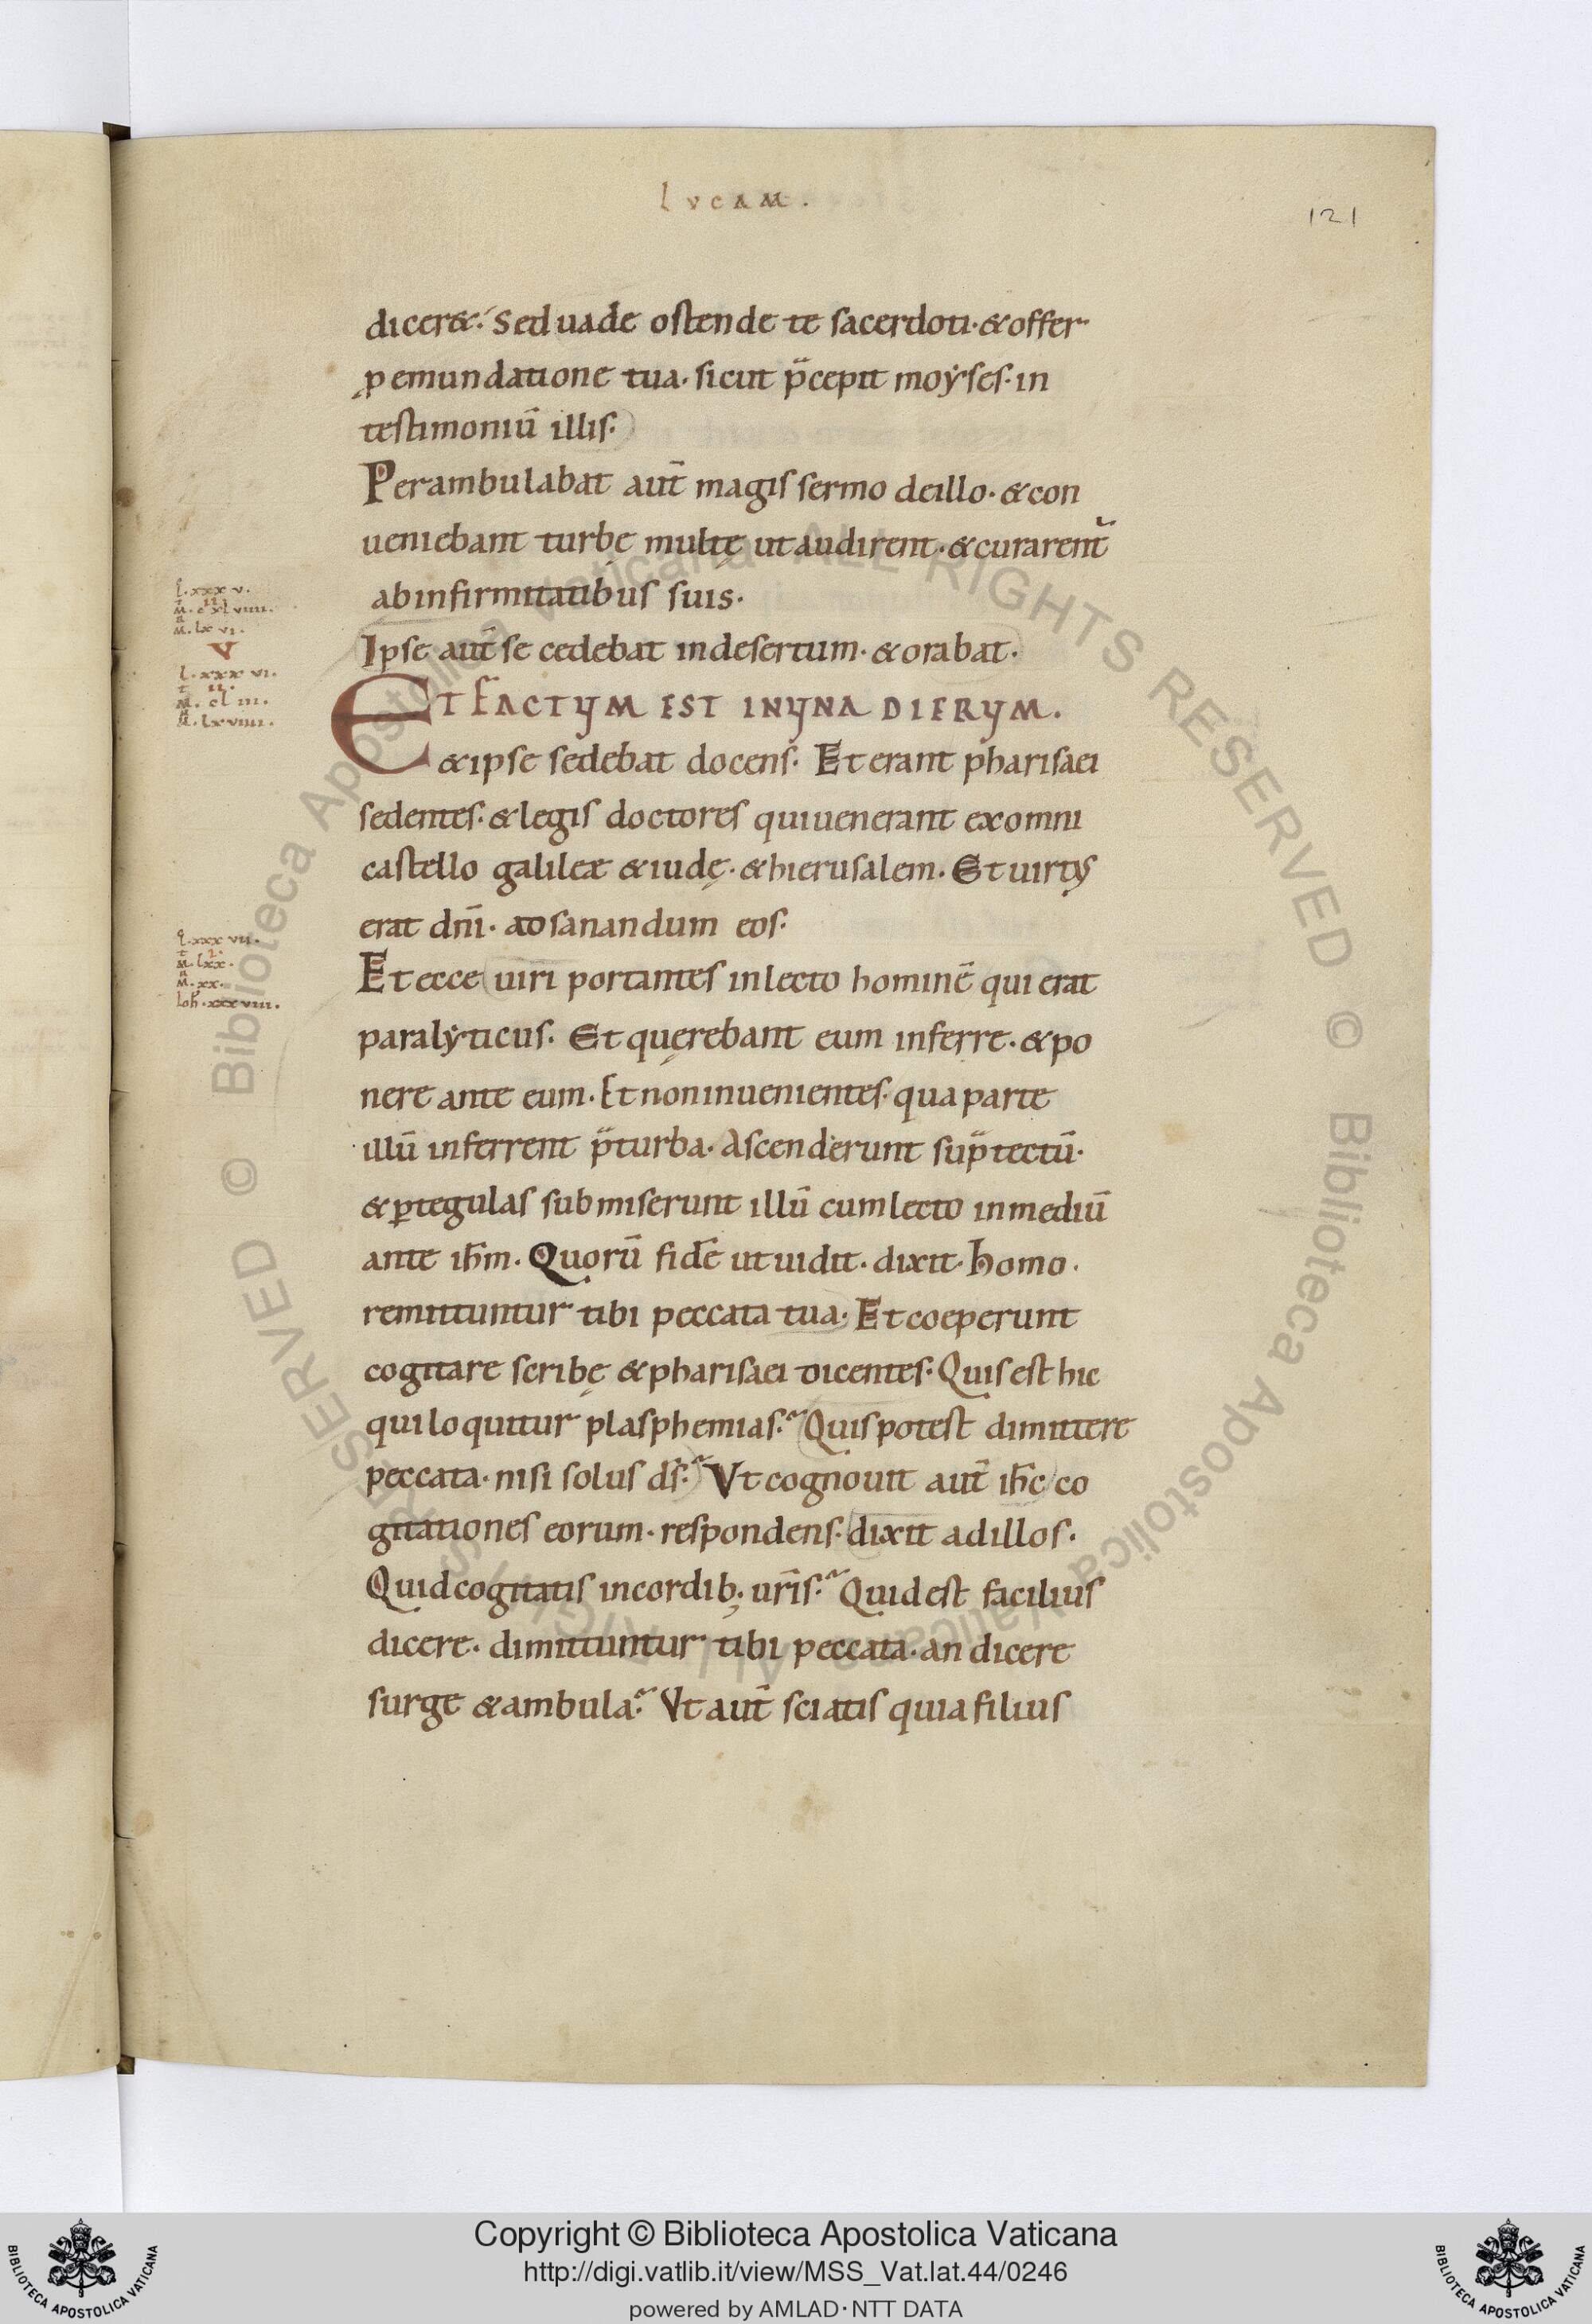 LVCAM.
121
dicer&. Sed uade ostende te sacerdoti. & offer
ꝓ emundatione tua. sicut p̄cepit moyses. in
testimoniū illis.
Perambulabat aut̄ magis sermo deillo. & con
ueniebant turbę multę ut audirent. & curarent᷑
ab infirmitatibus suis.
Ipse aut̄ se cedebat in desertum. & orabat.
ET FACTUM EST IN UNA DIERUM.
& ipse sedebat docens. Et erant pharisaei
sedentes. & legis doctores qui uenerant ex omni
castello galileæ & iudę. & hierusalem. Et uirtus
erat dn̄i. ad sanandum eos.
Et ecce uiri portantes in lecto hominē qui erat
paralyticus. Et querebant eum inferre. & po
nere ante eum. Et non inuenientes. qua parte
illū inferrent p̄ turba. Ascenderunt sup̄ tectū.
& ꝑ tegulas submiserunt illū cum lecto in mediū
ante ih̄m. Quorū fidē ut uidit. dixit. homo.
remittuntur tibi peccata tua. Et coeperunt
cogitare scribę & pharisaei dicentes. Quis est hic
qui loquitur plasphemias. Quis potest dimittere
peccata. nisi solus d̄s. Vt cognouit aut̄ ih̄c co
gitationes eorum. respondens. dixit ad illos.
Quid cogitatis in cordib; ur̄is. Quid est facilius
dicere. dimittuntur tibi peccata. an dicere
surge & ambula. Vt aut̄ sciatis quia filius
l. xxx v.
m. lx vi.
V
l. xxx vi.
m. cl iii.
m. lxviiii.
l. xxx vii.
m. lxx.
m. xx.
Ioh. xxxviii.
© Biblioteca Apostolica Vaticana ALL RIGHTS RESERVED
© Biblioteca Apostolica Vaticana ALL RIGHTS RESERVED
Copyright © Biblioteca Apostolica Vaticana
http://digi.vatlib.it/view/MSS_Vat.lat.44/0246
powered by AMLAD·NTT DATA
BIBLIOTECA APOSTOLICA VATICANA
BIBLIOTECA APOSTOLICA VATICANA